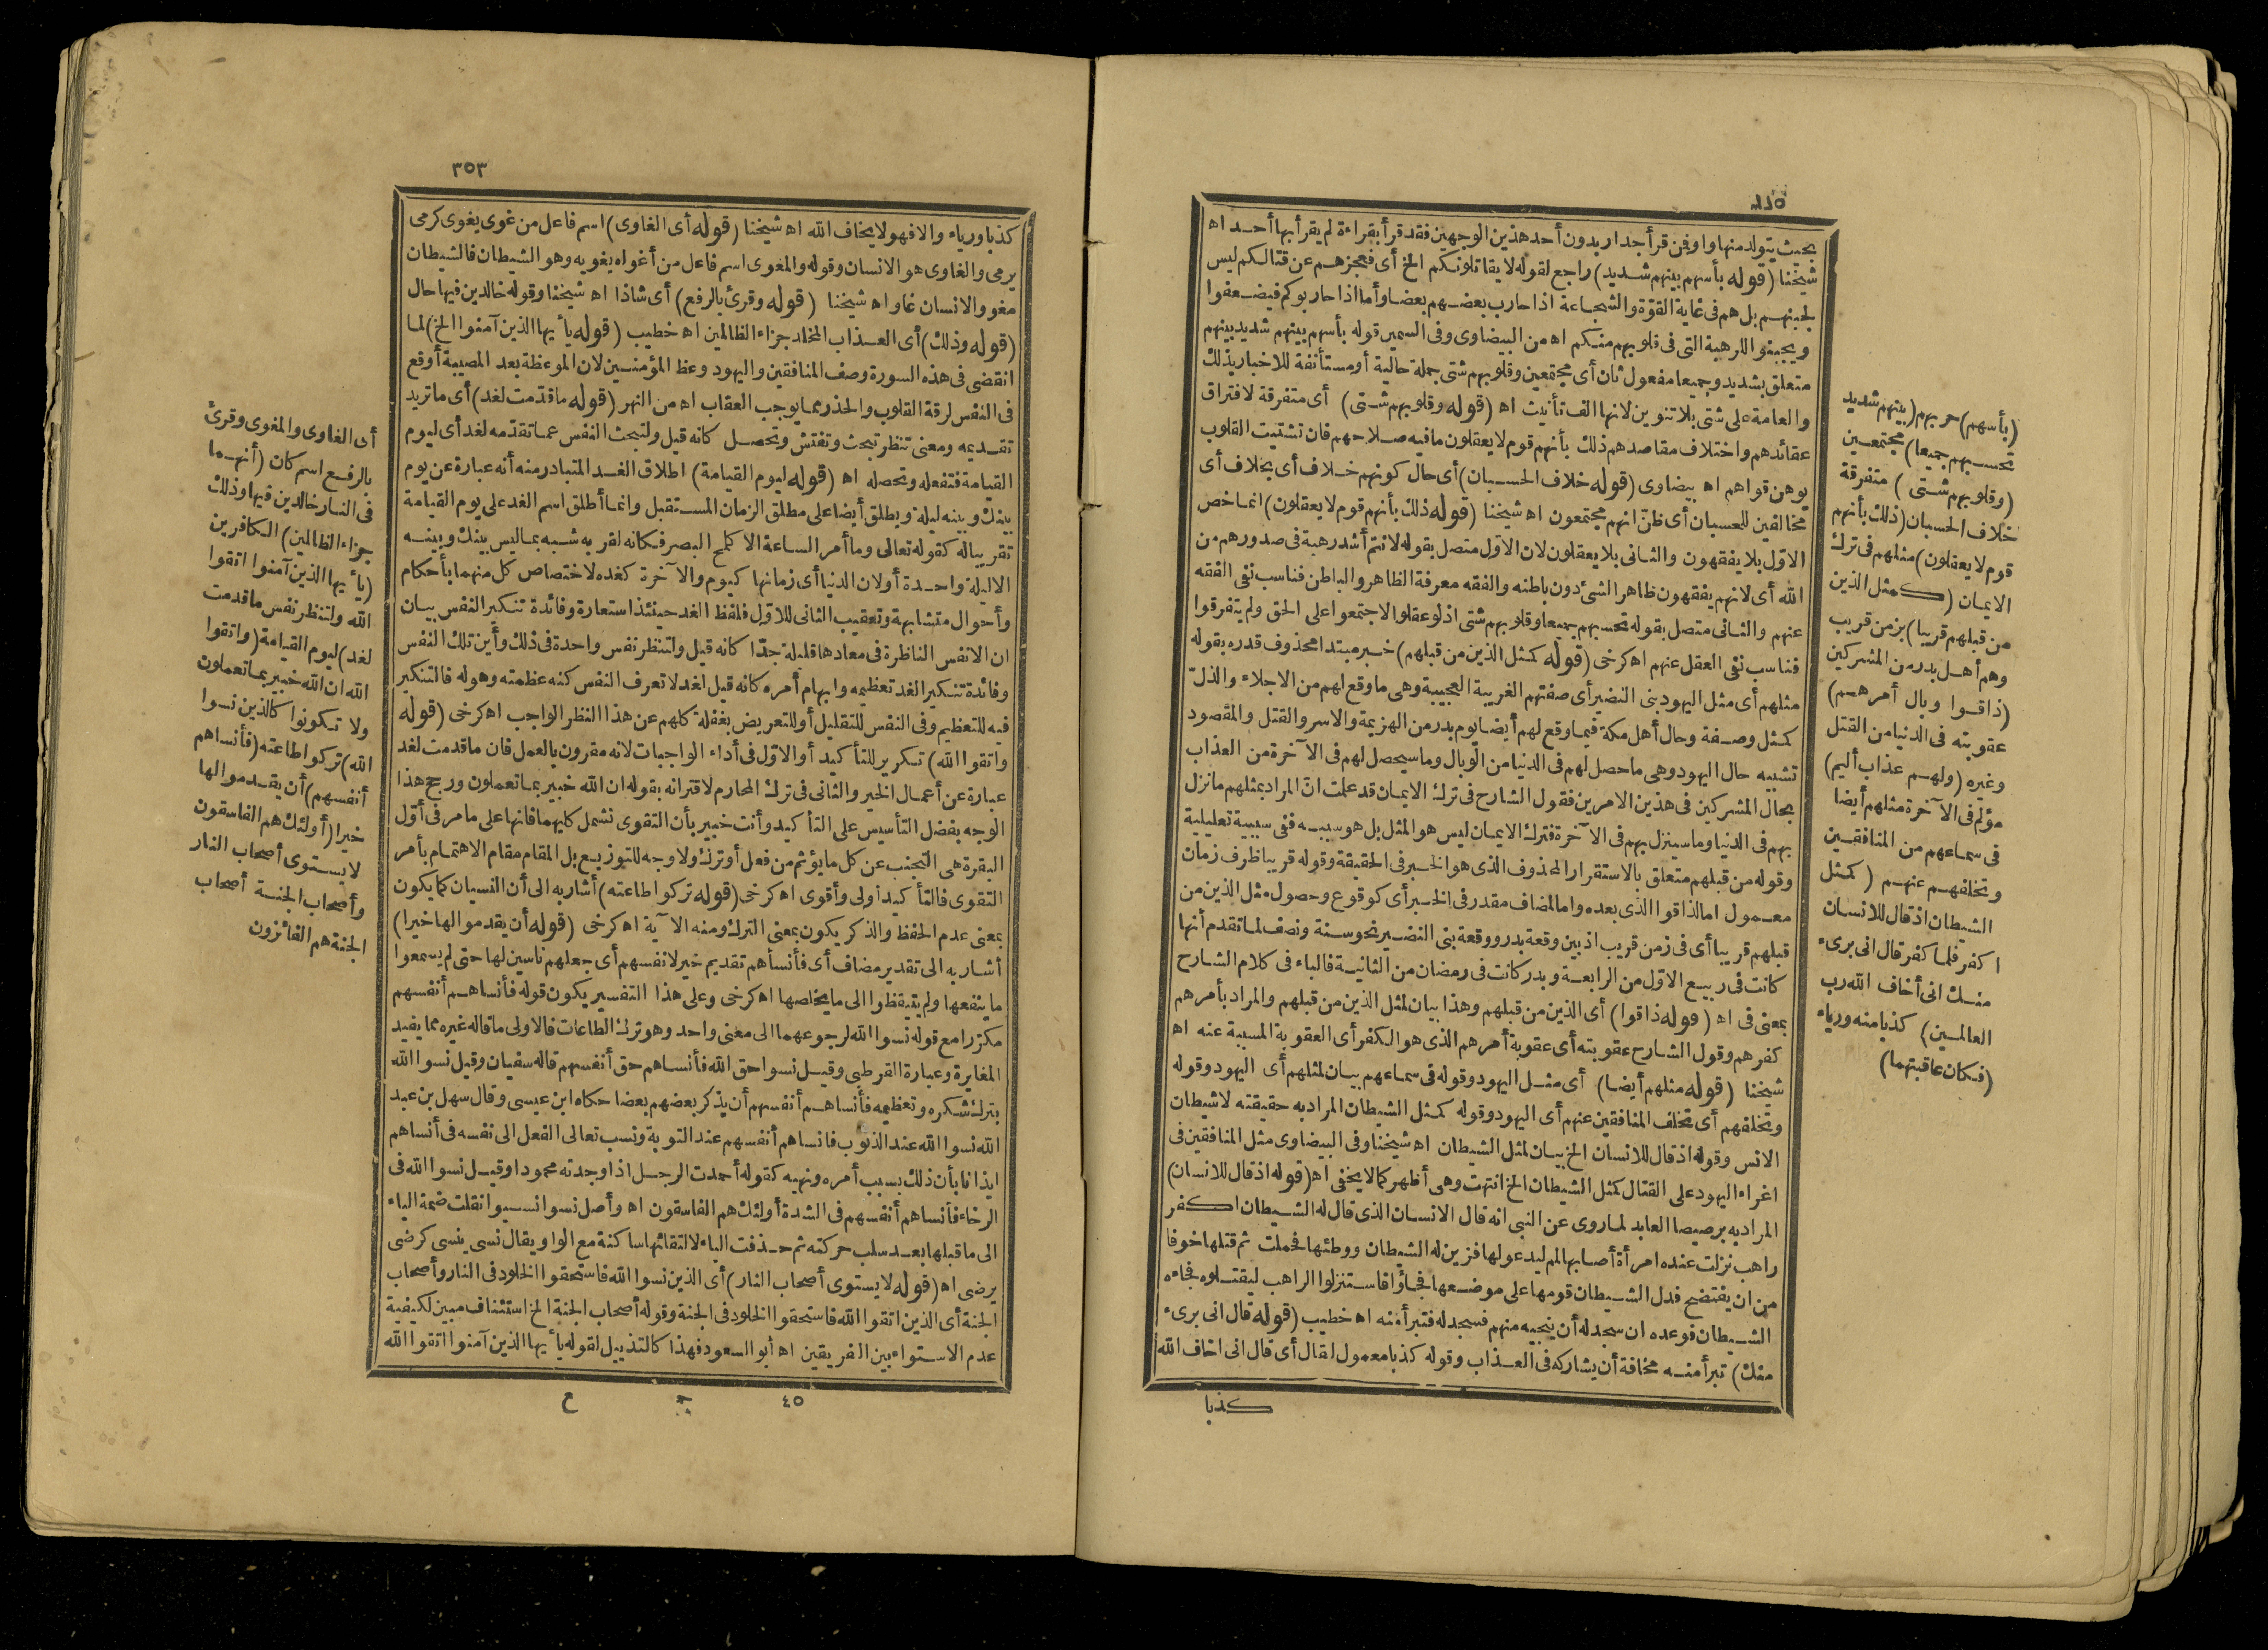 بحيث يتولد منها واو فمن قرأ جدار بدون أحد هذين الوجهين فقد قرأ بقراءة لم يقرأ بها أحد اه
شيخنا (قوله بأسهم بينهم شديد) راجع لقوله لا يقاتلونكم الخ أى فعجزهم عن قتالكم ليس
لجبنهم بل هم فى غاية القوّة والشجاعة اذا حارب بعضهم بعضا وأما اذا حاربوكم فيضعفوا
ويجبنوا للرهبة التى فى قلوبهم منكم اه من البيضاوى وفى السمين قوله بأسهم بينهم شديد بينهم
متعلق بشديد وجميعا مفعول ثان أى مجتمعين وقلوبهم شتى جملة حالية أو مستأنفة للاخبار بذلك
والعامة على شتى بلا تنوين لانها الف تأنيث اه (قوله وقلوبهم شتى) أى متفرقة لافتراق
عقائدهم واختلاف مقاصدهم ذلك بأنهم قوم لا يعقلون ما فيه صلاحهم فان تشتيت القلوب
يوهن قواهم اه بيضاوى (قوله خلاف الحسبان) أى حال كونهم خلاف أى بخلاف أى
مخالفين للحسبان أى ظنّ انهم مجتمعون اه شيخنا (قوله ذلك بأنهم قوم لا يعقلون) انما خص
الاوّل بلا يفقهون والثانى بلا يعقلون لان الاوّل متصل بقوله لانتم أشد رهبة فى صدورهم من
الله أى لانهم يفقهون ظاهر الشئ دون باطنه والفقه معرفة الظاهر والباطن فناسب نفى الفقه
عنهم والثانى متصل بقوله تحسبهم جميعا وقلوبهم شتى اذ لو عقلوا لاجتمعوا على الحق ولم يتفرقوا
فناسب نفى العقل عنهم اه كرخى (قوله كمثل الذين من قبلهم) خبر مبتدا محذوف قدره بقوله
مثلهم أى مثل اليهود بنى النضير أى صفتهم الغريبة العجيبة وهى ما وقع لهم من الاجلاء والذلّ
كمثل وصفة وحال أهل مكة فيما وقع لهم أيضا يوم بدر من الهزيمة والاسر والقتل والمقصود
تشبيه حال اليهود وهى ما حصل لهم فى الدنيا من الوبال وما سيحصل لهم فى الآخرة من العذاب
بحال المشركين فى هذين الامرين فقول الشارح فى ترك الايمان قد علمت انّ المراد بمثلهم ما نزل
بهم فى الدنيا وما سينزل بهم فى الآخرة فترك الايمان ليس هو المثل بل هو سببه ففى سببية تعليلية
وقوله من قبلهم متعلق بالاستقرار المحذوف الذى هو الخبر فى الحقيقة وقوله قريبا ظرف زمان
معمول اما لذاقوا الذى بعده واما لمضاف مقدر فى الخبر أى كوقوع وحصول مثل الذين من
قبلهم قريبا أى فى زمن قريب اذ بين وقعة بدر ووقعة بنى النضير نحو سنة ونصف لما تقدم أنها
كانت فى ربيع الاوّل من الرابعة وبدر كانت فى رمضان من الثانية فالباء فى كلام الشارح
بمعنى فى اه (قوله ذاقوا) أى الذين من قبلهم وهذا بيان لمثل الذين من قبلهم والمراد بأمرهم
كفرهم وقول الشارح عقوبته أى عقوبة أمرهم الذى هو الكفر أى العقوبة المسببة عنه اه
شيخنا (قوله مثلهم أيضا) أى مثل اليهود وقوله فى سماعهم بيان لمثلهم أى اليهود وقوله
وتخلفهم أى تخلف المنافقين عنهم أى اليهود وقوله كمثل الشيطان المراد به حقيقته لا شيطان
الانس وقوله اذ قال للانسان الخ بيان لمثل الشيطان اه شيخنا وفى البيضاوى مثل المنافقين فى
اغراء اليهود على القتال كمثل الشيطان الخ انتهت وهى أظهر كما لا يخفى اه (قوله اذ قال للانسان)
المراد به برصيصا العابد لما روى عن النبى انه قال الانسان الذى قال له الشيطان اكفر
راهب نزلت عنده امرأة أصابها لمم ليدعو لها فزين له الشيطان ووطئها فحملت ثم قتلها خوفا
من ان يفتضح فدل الشيطان قومها على موضعها فجاؤا فاستنزلوا الراهب ليقتلوه فجاءه
الشيطان فوعده ان سجد له أن ينجيه منهم فسجد له فتبرأ منه اه خطيب (قوله قال انى برىء
منك) تبرأ منه مخافة أن يشاركه فى العذاب وقوله كذبا معمول لقال أى قال انى اخاف الله
كذبا
(بأسهم) حربهم (بينهم شديد
تحسبهم جميعا) مجتمعين
(وقلوبهم شتى) متفرقة
خلاف الحسبان (ذلك بأنهم
قوم لا يعقلون) مثلهم فى ترك
الايمان (كمثل الذين
من قبلهم قريبا) بزمن قريب
وهم أهل بدر من المشركين
(ذاقوا وبال أمرهم)
عقوبته فى الدنيا من القتل
وغيره (ولهم عذاب أليم)
مؤلم فى الآخرة مثلهم أيضا
فى سماعهم من المنافقين
وتخلفهم عنهم (كمثل
الشيطان اذ قال للانسان
اكفر فلما كفر قال انى برىء
منك انى أخاف الله رب
العالمين) كذبا منه ورياء
(فكان عاقبتهما)
٣٥٣
كذبا ورياء والا فهو لا يخاف الله اه شيخنا (قوله أى الغاوى) اسم فاعل من غوى يغوى كرمى
يرمى والغاوى هو الانسان وقوله والمغوى اسم فاعل من أغواه يغويه وهو الشيطان فالشيطان
مغو والانسان غاو اه شيخنا (قوله وقرئ بالرفع) أى شاذا اه شيخنا وقوله خالدين فيها حال
(قوله وذلك) أى العذاب المخلد جزاء الظالمين اه خطيب (قوله يأيها الذين آمنوا الخ) لما
انقضى فى هذه السورة وصف المنافقين واليهود وعظ المؤمنين لان الموعظة بعد المصيبة أوقع
فى النفس لرقة القلوب والحذر مما يوجب العقاب اه من النهر (قوله ما قدّمت لغد) أى ما تريد
تقديمه ومعنى تنظر تبحث وتفتش وتحصل كانه قيل ولتبحث النفس عما تقدّمه لغد أى ليوم
القيامة فتفعله وتحصله اه (قوله ليوم القيامة) اطلاق الغد المتبادر منه أنه عبارة عن يوم
بينك وبينه ليلة ويطلق أيضا على مطلق الزمان المستقبل وانما أطلق اسم الغد على يوم القيامة
تقريبا له كقوله تعالى وما أمر الساعة الا كلمح البصر فكانه لقربه شبه بما ليس بينك وبينه
الا ليلة واحدة أو لان الدنيا أى زمانها كيوم والآخرة كغده لاختصاص كل منهما بأحكام
وأحوال متشابهة وتعقيب الثانى للاوّل فلفظ الغد حينئذ استعارة وفائدة تنكير النفس بيان
ان الانفس الناظرة فى معادها قليلة جدّا كانه قيل ولتنظر نفس واحدة فى ذلك وأين تلك النفس
وفائدة تنكير الغد تعظيمه وابهام أمره كانه قيل لغد لا تعرف النفس كنه عظمته وهوله فالتنكير
فيه للتعظيم وفى النفس للتقليل أو للتعريض بغفلة كلهم عن هذا النظر الواجب اه كرخى (قوله
واتقوا الله) تكرير للتأكيد أو الاوّل فى أداء الواجبات لانه مقرون بالعمل فان ما قدمت لغد
عبارة عن أعمال الخير والثانى فى ترك المحارم لاقترانه بقوله ان الله خبير بما تعملون ورجح هذا
الوجه بفضل التأسيس على التأكيد وأنت خبير بأن التقوى تشمل كليهما فانها على ما مر فى أوّل
البقرة هى التجنب عن كل ما يؤثم من فعل أو ترك ولا وجه للتوزيع بل المقام مقام الاهتمام بأمر
التقوى فالتأكيد أولى وأقوى اه كرخى (قوله تركوا طاعته) أشار به الى أن النسيان كما يكون
بمعنى عدم الحفظ والذكر يكون بمعنى الترك ومنه الآية اه كرخى (قوله أن يقدموا لها خيرا)
أشار به الى تقدير مضاف أى فأنساهم تقديم خير لانفسهم أى جعلهم ناسين لها حتى لم يسمعوا
ما ينفعها ولم يتيقظوا الى ما يخلصها اه كرخى وعلى هذا التفسير يكون قوله فأنساهم أنفسهم
مكرّرا مع قوله نسوا الله لرجوعهما الى معنى واحد وهو ترك الطاعات فالاولى ما قاله غيره مما يفيد
المغايرة وعبارة القرطبى وقيل نسوا حق الله فأنساهم حق أنفسهم قاله سفيان وقيل نسوا الله
بترك شكره وتعظيمه فأنساهم أنفسهم أن يذكر بعضهم بعضا حكاه ابن عيسى وقال سهل بن عبد
الله نسوا الله عند الذنوب فانساهم أنفسهم عند التوبة ونسب تعالى الفعل الى نفسه فى أنساهم
ايذانا بأن ذلك بسبب أمره ونهيه كقوله أحمدت الرجل اذا وجدته محمودا وقيل نسوا الله فى
الرخاء فأنساهم أنفسهم فى الشدة أولئك هم الفاسقون اه وأصل نسوا نسيوا نقلت ضمة الياء
الى ما قبلها بعد سلب حركته ثم حذفت الياء لالتقائها ساكنة مع الواو يقال نسى ينسى كرضى
يرضى اه (قوله لا يستوى أصحاب النار) أى الذين نسوا الله فاستحقوا الخلود فى النار وأصحاب
الجنة أى الذين اتقوا الله فاستحقوا الخلود فى الجنة وقوله أصحاب الجنة الخ استئناف مبين لكيفية
عدم الاستواء بين الفريقين اه أبو السعود فهذا كالتذييل لقوله يأيها الذين آمنوا اتقوا الله
أى الغاوى والمغوى وقرئ
بالرفع اسم كان (أنهما
فى النار خالدين فيها وذلك
جزاء الظالمين) الكافرين
(يأيها الذين آمنوا اتقوا
الله ولتنظر نفس ما قدمت
لغد) ليوم القيامة (واتقوا
الله ان الله خبير بما تعملون
ولا تكونوا كالذين نسوا
الله) تركوا طاعته (فأنساهم
أنفسهم) أن يقدموا لها
خيرا (أولئك هم الفاسقون
لا يستوى أصحاب النار
وأصحاب الجنة أصحاب
الجنة هم الفائزون
٤٥ ح